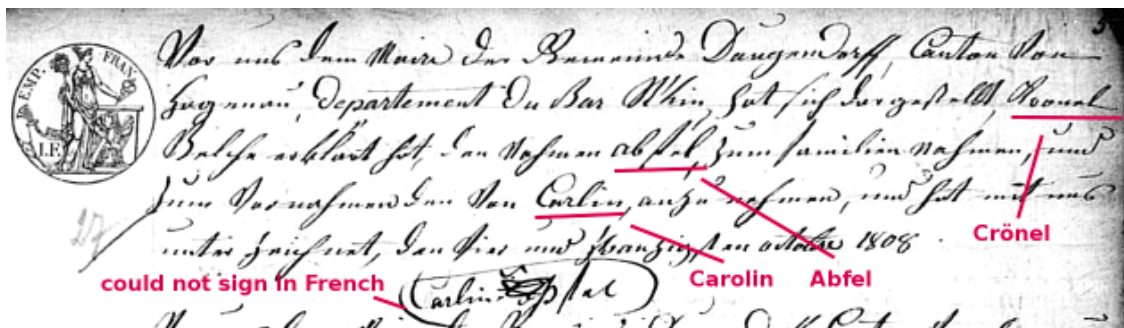 5
EMP. FRAN.
I.F.
Vor uns dem Maire der Gemeinde Daugendorff, Canton Von
Hagenau, Departement Du Bas Rhin, hat sich dargestellt Kronel
Welche erklärt hat, den Nahmen abfel, zum familien Nahmen, und
zum Vornahmen den Von Carlin, anzu nehmen, und hat mit uns
unter zeichnet, den Vier und zwanzigsten octobre 1808.
27
Crönel
Carolin Abfel
could not sign in French
Carlin
Vor uns dem Maire der Gemeinde Canton Von